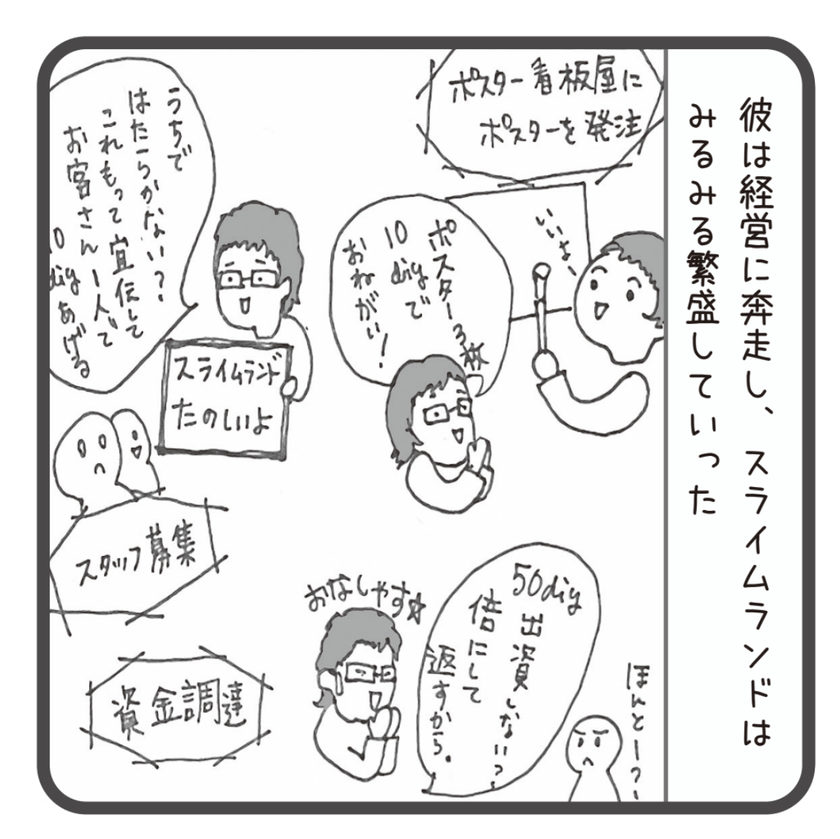 彼は経営に奔走し、スライムランドは
みるみる繁盛していった
ポスター看板屋に
ポスターを発注
いいよー
ポスター3枚
10
diyで
おねがい!
うちで
はたらかない?
これもって宣伝して
お客さん1人で
10
diyあげる
スライムランド
たのしいよ
スタッフ募集
50diy
出資しない?
倍にして
返すから。
おなしゃす☆
ほんとー?
資金調達